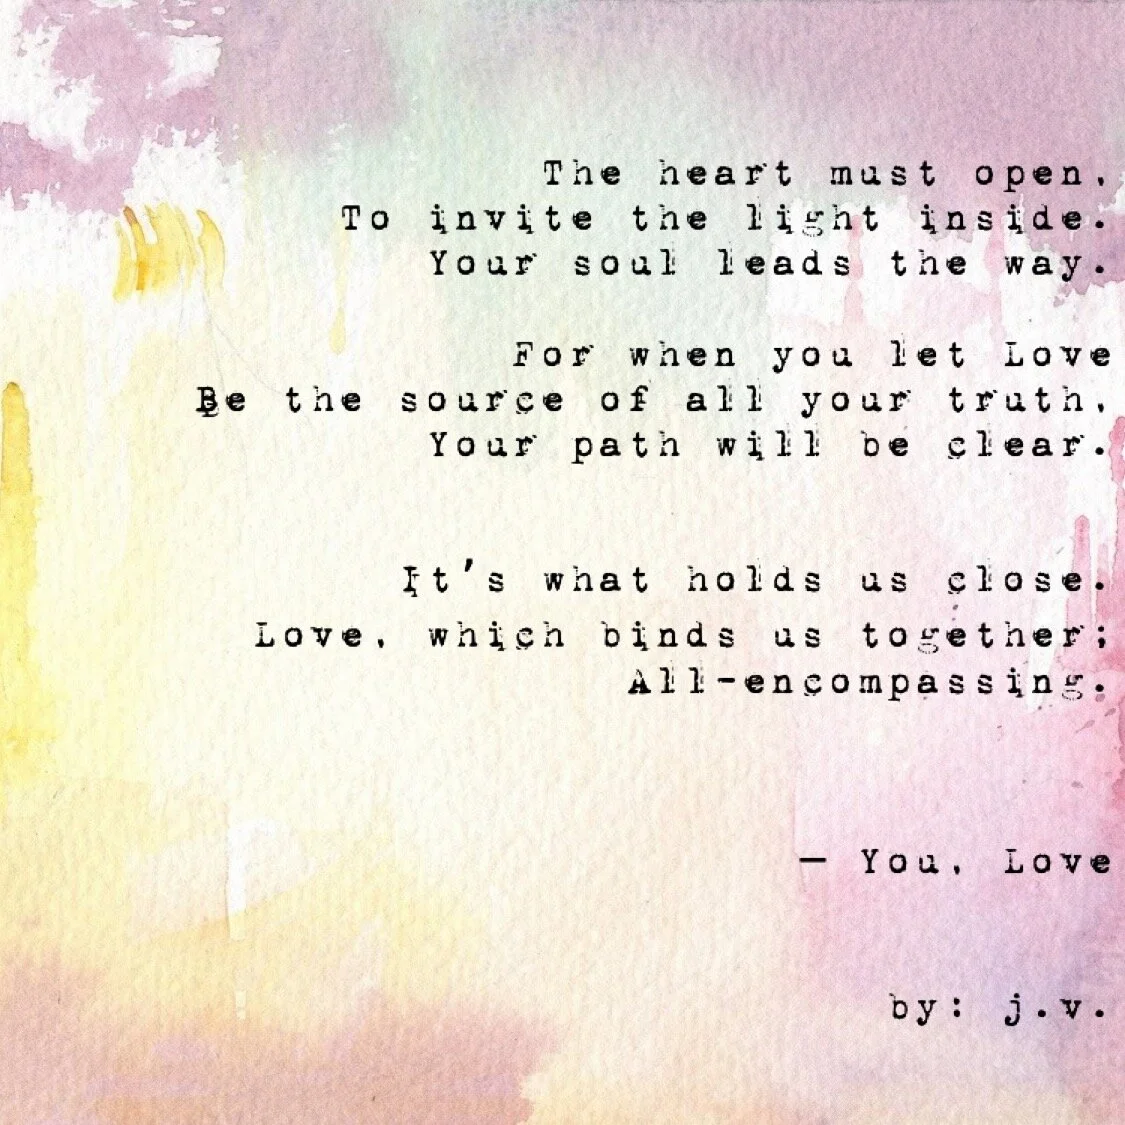 The heart must open,
To invite the light inside.
Your soul leads the way.
For when you let Love
Be the source of all your truth,
Your path will be clear.
It's what holds us close.
Love, which binds us together;
All-encompassing.
— You, Love
by: j.v.